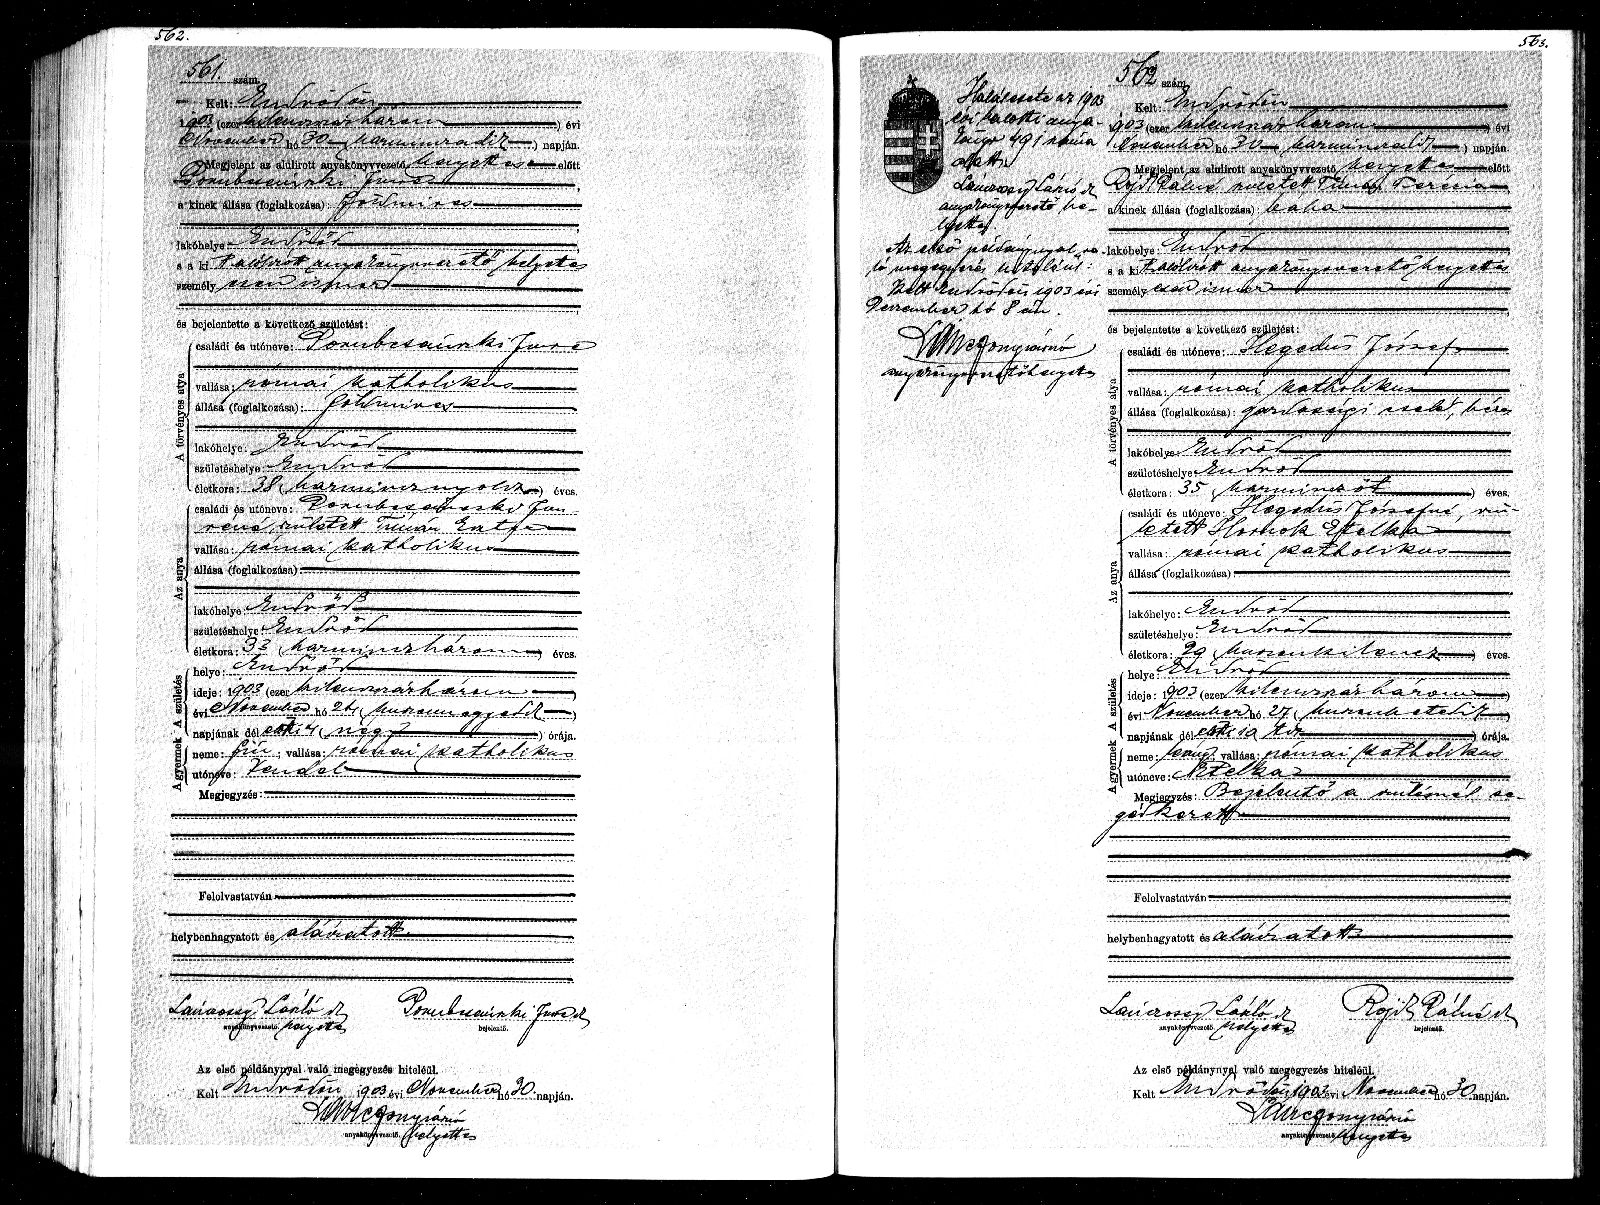 562.
561. szám.
Kelt: Endrődön
1903 (ezer kilencszázhárom) évi
November hó 30 (harmincadik) napján.
Megjelent az alulírott anyakönyvvezető helyettes előtt
Porubcsánszki Imre
a kinek állása (foglalkozása): földmives
lakóhelye: Endrőd
s a ki t alólirott anyakönyvvezető helyettes
személy
és bejelentette a következő születést:
A törvényes atya
családi és utóneve: Porubcsánszki Imre
vallása: római katholikus
állása (foglalkozása): földmives
lakóhelye: Endrőd
születéshelye: Endrőd
életkora: 38 (harmincznyolcz) éves.
Az anya
családi és utóneve: Porubcsánszki Im-
réné, született Timár
vallása: római katholikus
állása (foglalkozása):
lakóhelye: Endrőd
születéshelye: Endrőd
életkora: 33 (harminczhárom) éves.
A születés
helye: Endrőd
ideje: 1903 (ezer kilenczszázhárom)
évi November hó 21 (huszonegyedik)
napjának dél előtti 4 (négy) órája.
A gyermek
neme: fiú; vallása: római katholikus
utóneve: Vendel
Megjegyzés:
Felolvastatván
helybenhagyatott és aláiratott
László Porubcsánszki Imre
anyakönyvvezető. helyettes bejelentő.
Az első példánynyal való megegyezés hiteléül.
Kelt Endrődön 1903 évi November hó 30. napján.
anyakönyvvezető. helyettes
563.
Halálesete az 1903
évi halotti anya-
könyv 491 száma
alatt
László
anyakönyvvezető he-
lyettes
Az első példánynyal va-
ló megegyezés hiteléül:
Kelt Endrődön 1903 évi
December hó 8 án.
anyakönyvvezetőhelyettes
562 szám.
Kelt: Endrődön
1903 (ezer kilencszázhárom) évi
November hó 30 (harmincadik) napján.
Megjelent az alulírott anyakönyvvezető helyettes előtt
Rojik Pálné született Timár Terézia
a kinek állása (foglalkozása): baba
lakóhelye: Endrőd
s a ki t alólirott anyakönyvvezető helyettes
személy esen ismer
és bejelentette a következő születést:
A törvényes atya
családi és utóneve: Hegedüs József
vallása: római katholikus
állása (foglalkozása): gazdasági cseléd, béres
lakóhelye: Endrőd
születéshelye: Endrőd
életkora: 35 (harminczöt) éves.
Az anya
családi és utóneve: Hegedüs Józsefné, szü-
letett Hornok Etelka
vallása: római katholikus
állása (foglalkozása):
lakóhelye: Endrőd
születéshelye: Endrőd
életkora: 29 (huszonkilencz) éves.
A születés
helye: Endrőd
ideje: 1903 (ezer kilenczszázhárom)
évi November hó 27 (huszonhetedik)
napjának dél előtti 10 (tiz) órája.
A gyermek
neme: leány; vallása: római katholikus
utóneve: Etelka
Megjegyzés: Bejelentő a szülésnél se-
gédkezett
Felolvastatván
helybenhagyatott és aláiratott
László Rojik Pálné
anyakönyvvezető. helyettes bejelentő.
Az első példánynyal való megegyezés hiteléül.
Kelt Endrődön 1903 évi November hó 30. napján.
anyakönyvvezető. helyettes